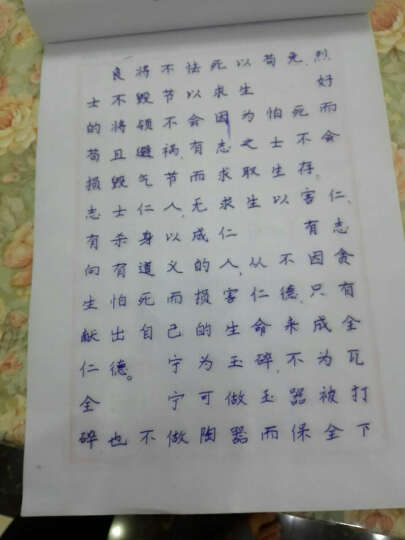 良将不怯死以苟免,烈
士不毁节以求生 好
的将领不会因为怕死而
苟且避祸,有志之士不会
损毁气节而求取生存。
志士仁人,无求生以害仁,
有杀身以成仁 有志
向有道义的人,从不因贪
生怕死而损害仁德,只有
献出自己的生命来成全
仁德。 宁为玉碎,不为瓦
全 宁可做玉器被打
碎也不做陶器而保全下